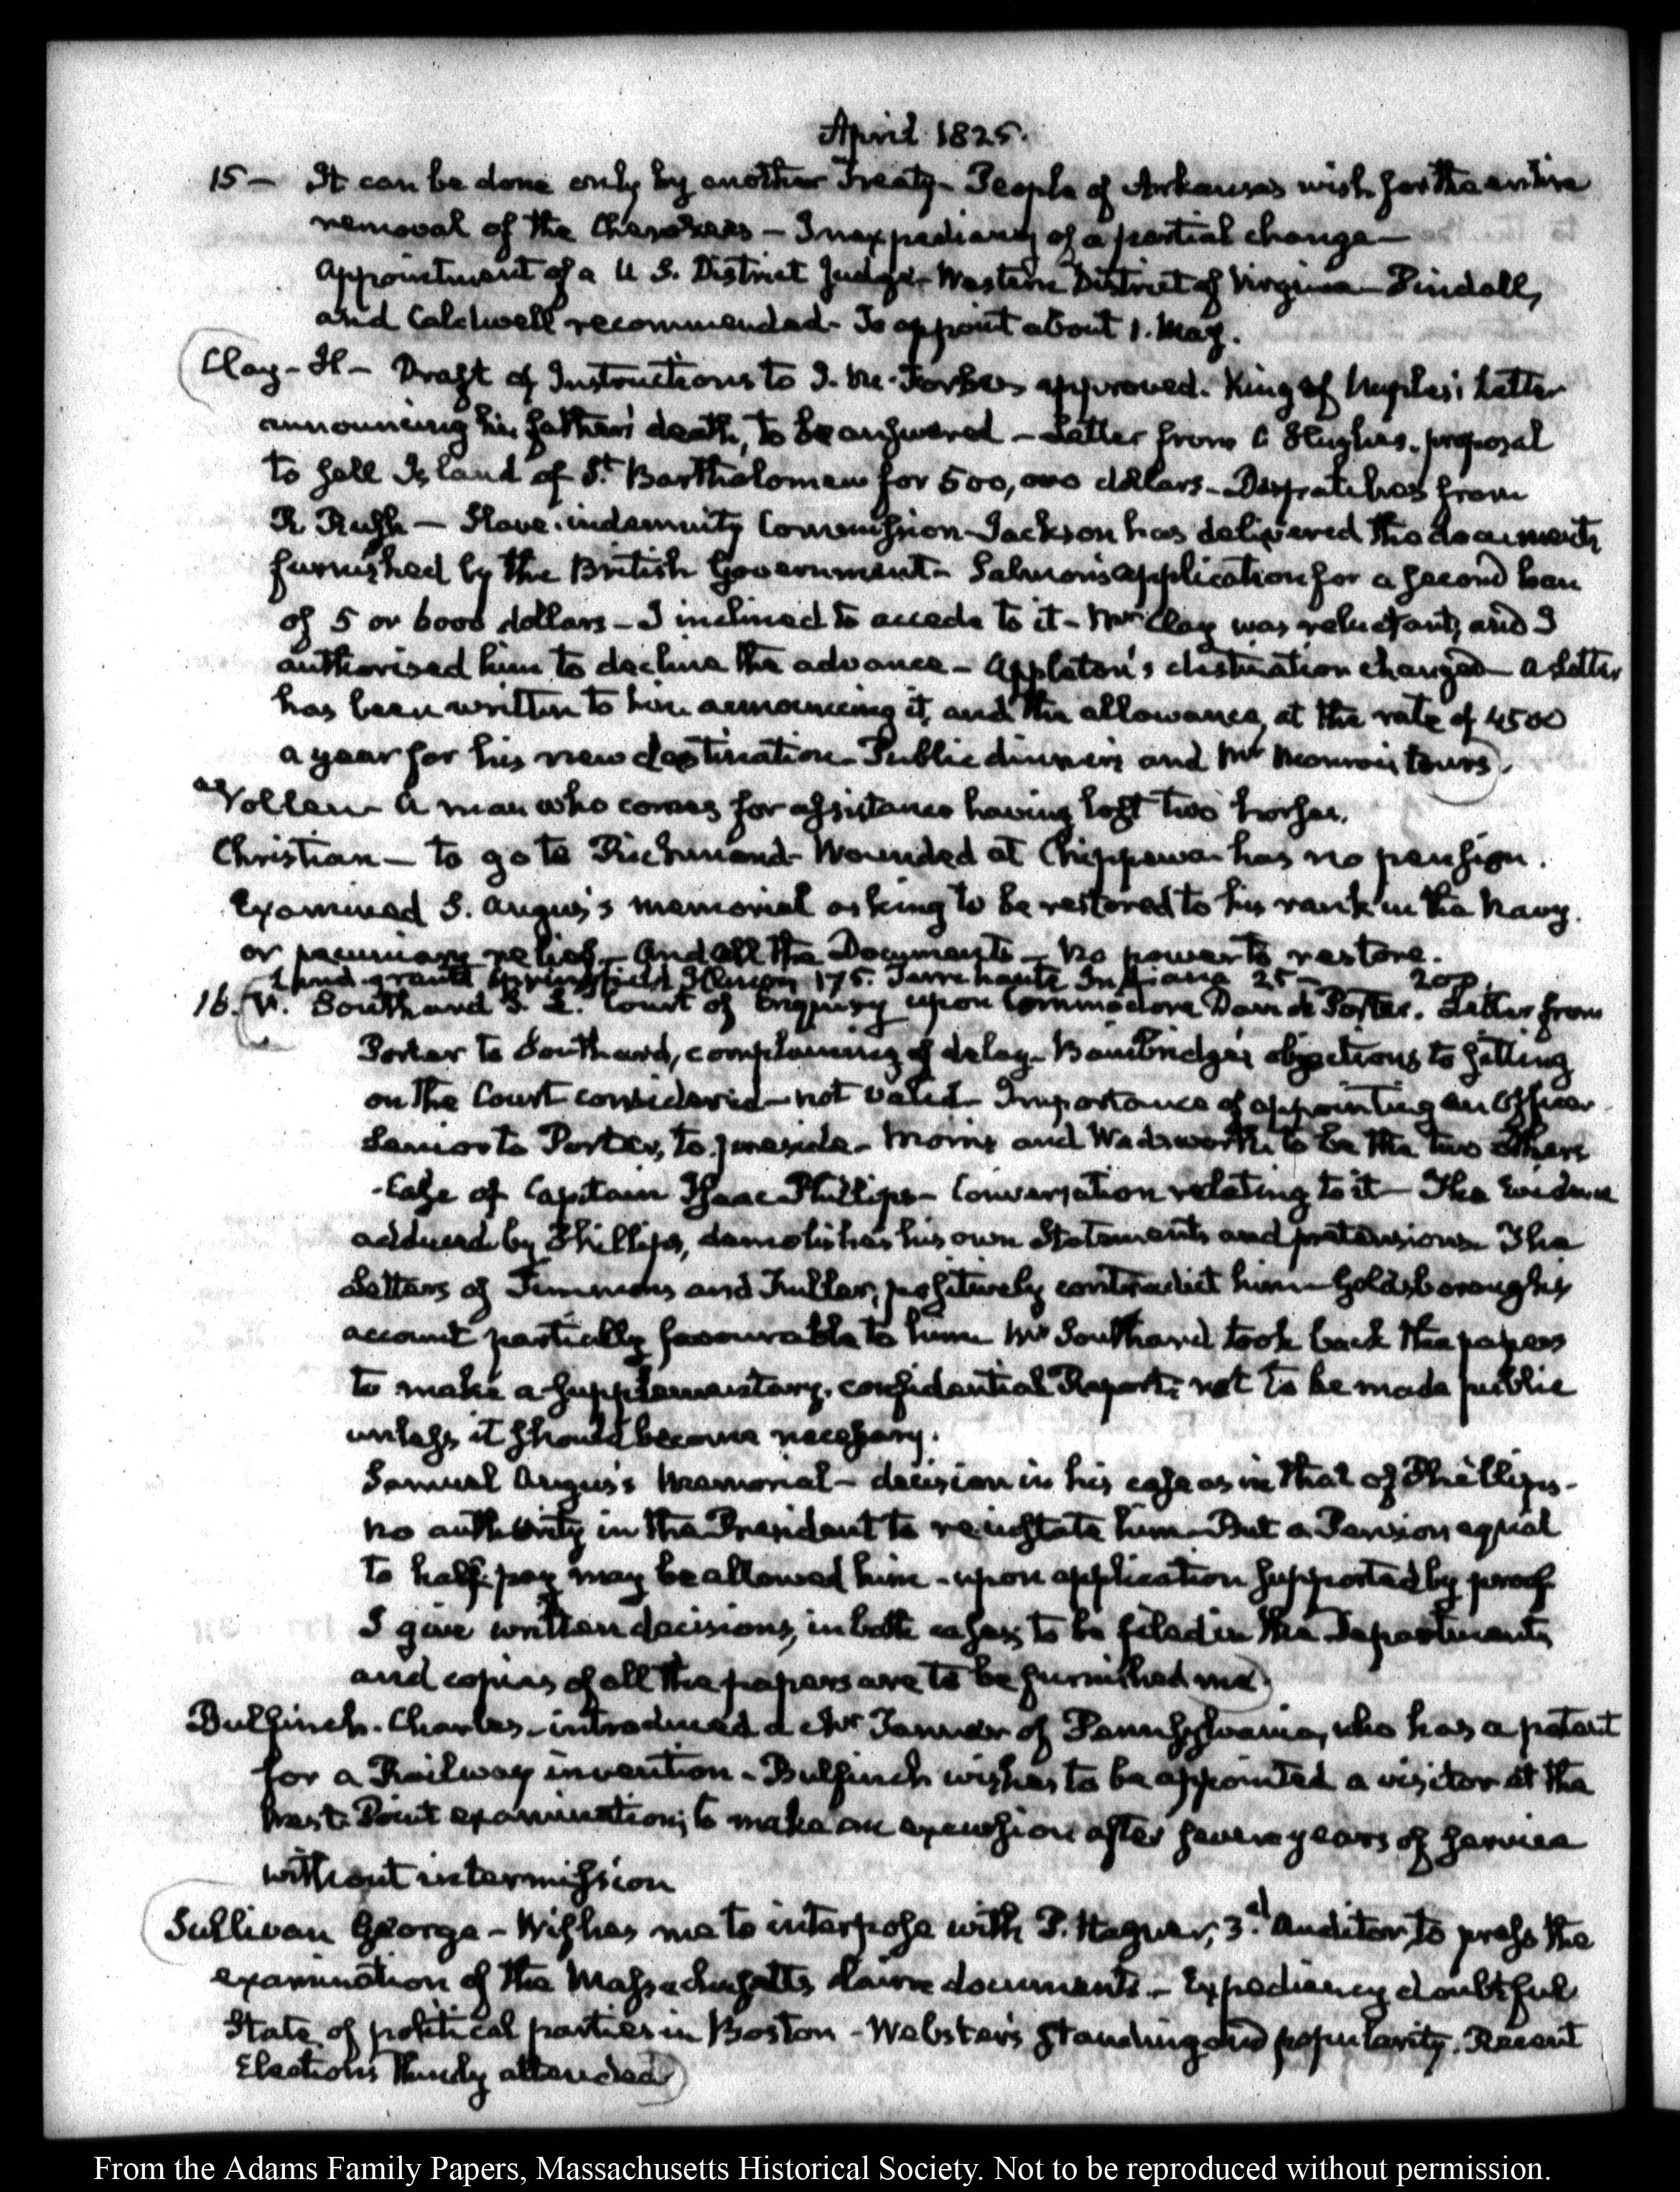 April 1825.
15 — It can be done only by another Treaty — People of Arkansas wish for the entire
removal of the Cherokees — Inexpediency of a partial change —
Appointment of a U S. District Judge — Western District of Virginia — Pindall,
and Caldwell recommended — To appoint about 1. May.
Clay — H — Draft of Instructions to J. M. Forbes approved. King of Naples's Letter
announcing his father's death, to be answered — Letter from C Hughes. proposal
to sell Island of St. Bartholomew for 500,000 dollars — Dispatches from
R Rush — Slave indemnity Commission — Jackson has delivered the documents
furnished by the British Government — Salmon's application for a second loan
of 5 or 6000 dollars — I inclined to accede to it — Mr Clay was reluctant, and I
authorised him to decline the advance — Appleton's destination changed — a Letter
has been written to him announcing it, and the allowance, at the rate of 4500
a year for his new destination — Public dinners and Mr Monroe's tours.
A man who comes for assistance having lost two horses.
Christian — to go to Richmond — Wounded at Chippewa — has no pension.
Examined S. Angus's memorial asking to be restored to his rank in the Navy.
or pecuniary relief — And all the Documents — No power to restore.
Land grants Springfield Illinois 175. Terre haute Indiana 25 — 200.
16. V. Southard S. L. Court of Enquiry upon Commodore David Porter. Letter from
Porter to Southard, complaining of delay — Bainbridge's objections to sitting
on the Court considered — not valid — Importance of appointing an Officer
Senior to Porter, to preside — Morris and Wadsworth to be the two others
- Case of Captain Isaac Phillips — Conversation relating to it — The Evidence
adduced by Phillips, demolishes his own Statements and pretensions The
Letters of Timmons and Fuller, positively contradict him — Goldsborough's
account partially favourable to him Mr Southard took back the papers
to make a supplementary, confidential Report, not to be made public
unless it should become necessary.
Samuel Angus's Memorial — decision in his case as in that of Phillips —
No authority in the President to reinstate him — But a Pension equal
to half pay may be allowed him — upon application supported by proof
I give written decisions, in both cases, to be filed in the Departments
and copies of all the papers are to be furnished me.
Bulfinch. Charles — introduced a Mr Tanner of Pennsylvania, who has a patent
for a Railway invention — Bulfinch wishes to be appointed a visitor at the
West Point examination, to make an excursion after seven years of service
without intermission
Sullivan George — Wishes me to interpose with P. Hagner, 3d. Auditor, to press the
examination of the Massachusetts claim documents. — Expediency doubtful
State of political parties in Boston — Webster's standing and popularity. Recent
Elections thinly attended
From the Adams Family Papers, Massachusetts Historical Society. Not to be reproduced without permission.